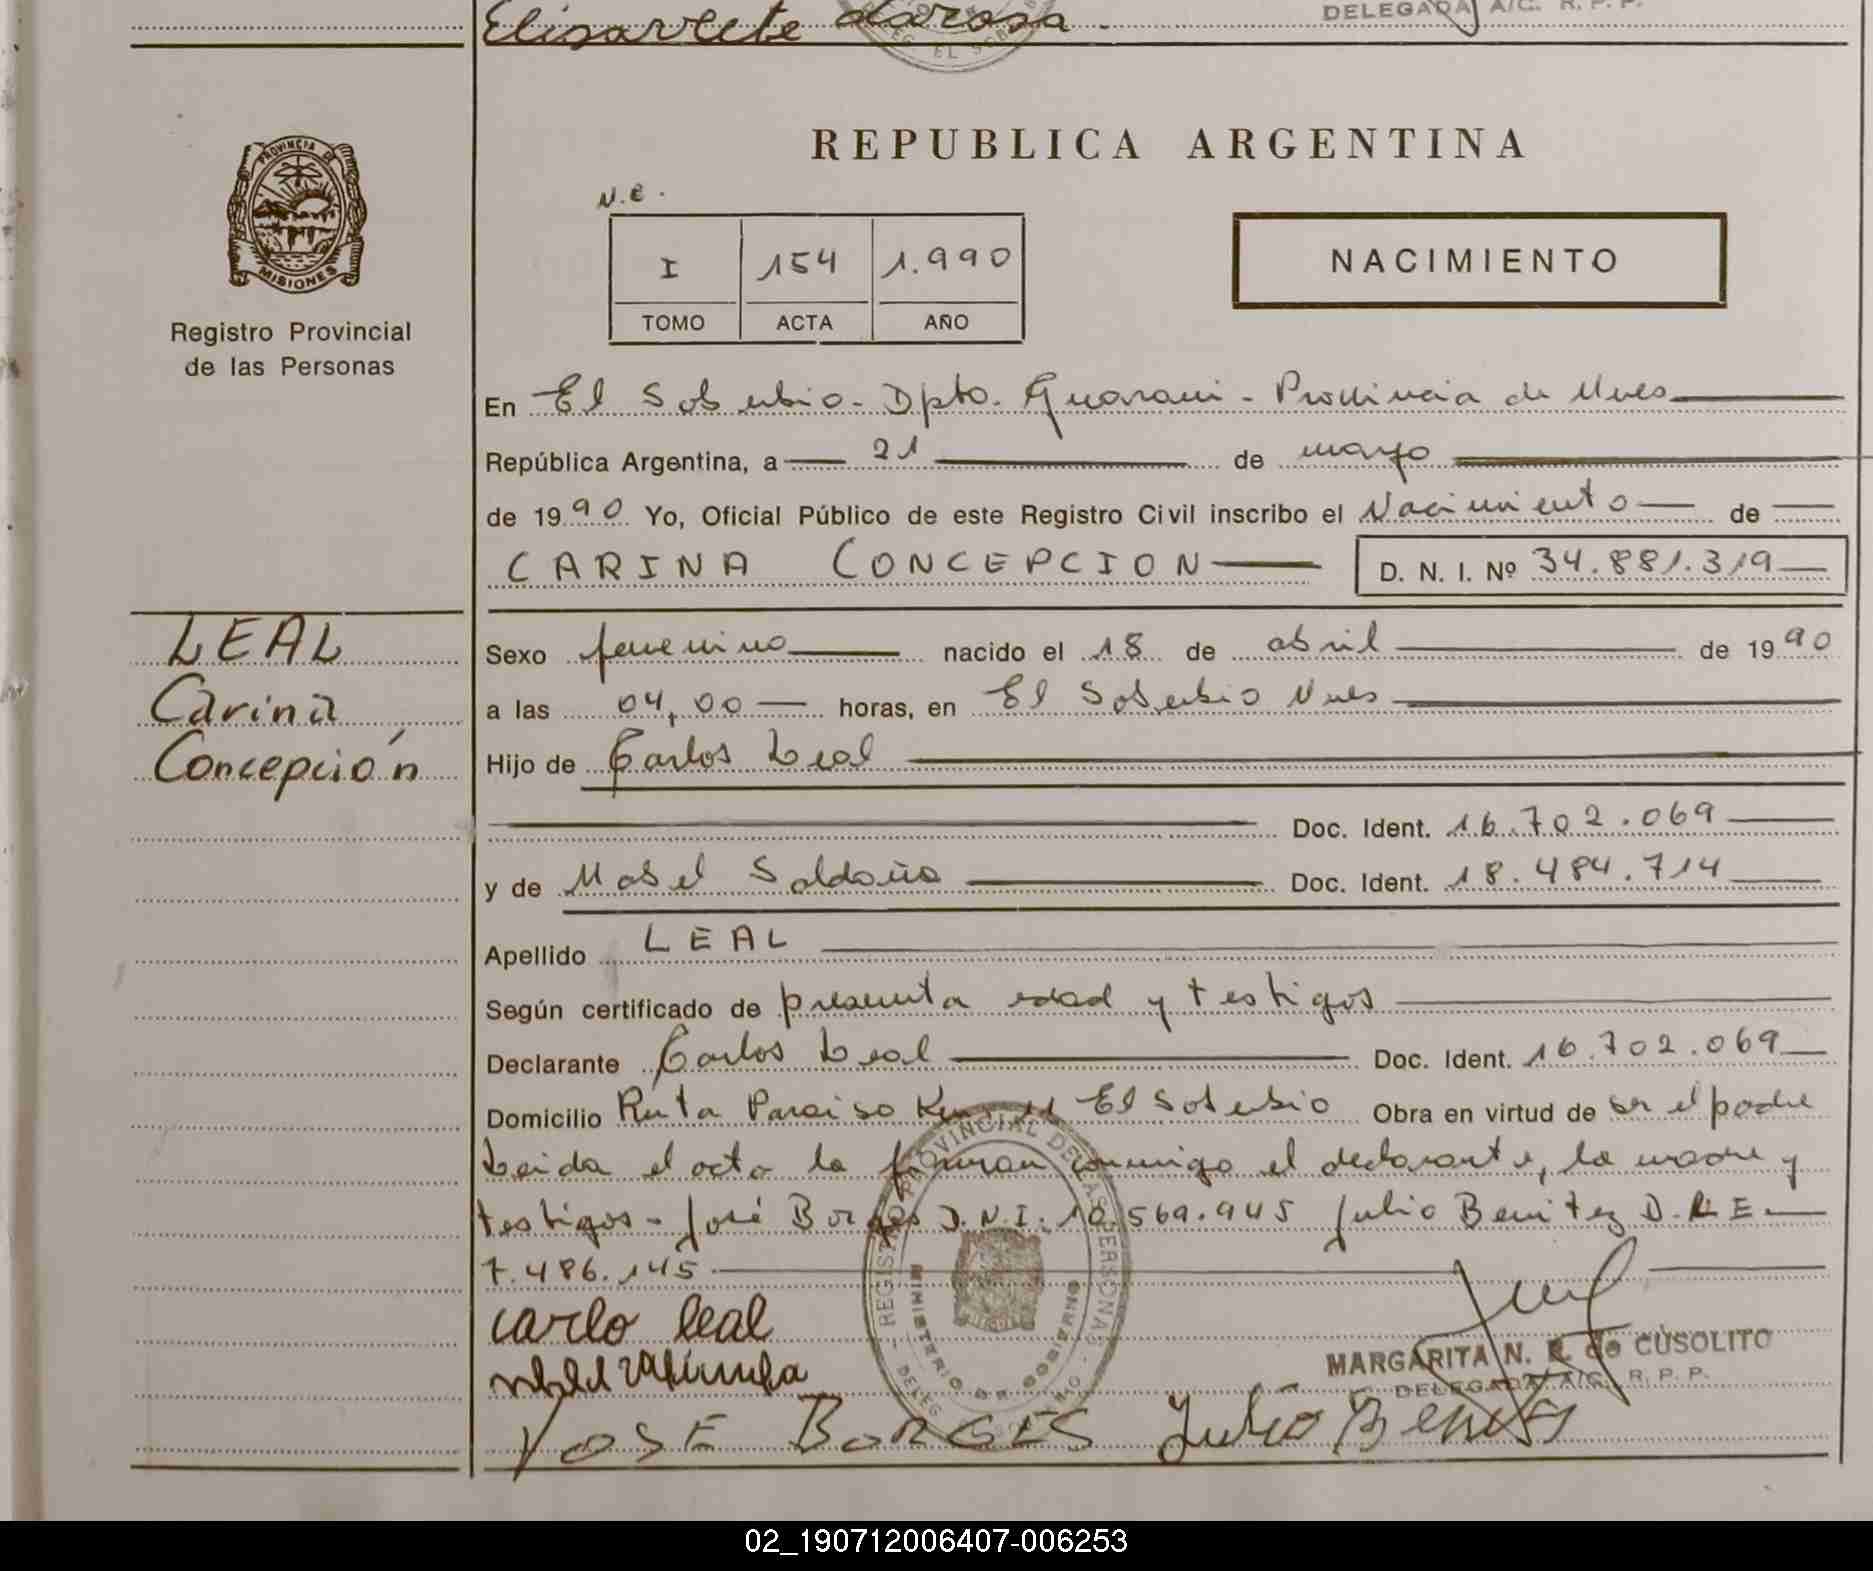 Elisarlete da rosa.
DELEGADA A/C. R. P. P.
PROVINCIA DE
MISIONES
Registro Provincial
de las Personas
REPUBLICA ARGENTINA
N.C.
I 154 1.990
TOMO ACTA AÑO
NACIMIENTO
En El Soberbio - Dpto. Guarani - Provincia de Mnes
República Argentina, a 21 de mayo
de 1990 Yo, Oficial Público de este Registro Civil inscribo el Nacimiento de
CARINA CONCEPCION D. N. I. Nº 34.881.319
LEAL
Carina
Concepción
Sexo femenino nacido el 18 de abril de 1990
a las 04,00 horas, en El Soberbio Mnes
Hijo de Carlos Leal
Doc. Ident. 16.702.069
y de Mabel Saldaña Doc. Ident. 18.484.714
Apellido LEAL
Según certificado de presunta edad y testigos
Declarante Carlos Leal Doc. Ident. 16.702.069
Domicilio Ruta Paraiso Km El Soberbio Obra en virtud de ser el padre
Leida el acta la firman conmigo el declarante, la madre y
testigos - José Borges D.N.I. 10.569.945 Julio Benitez D.N.I.
7.486.145
carlo leal
JOSE BORGES Julio Benites
MARGARITA N. R. de CUSOLITO
DELEGADA A/C. R. P. P.
REGISTRO PROVINCIAL DE LAS PERSONAS
MINISTERIO DE GOBIERNO
02_190712006407-006253